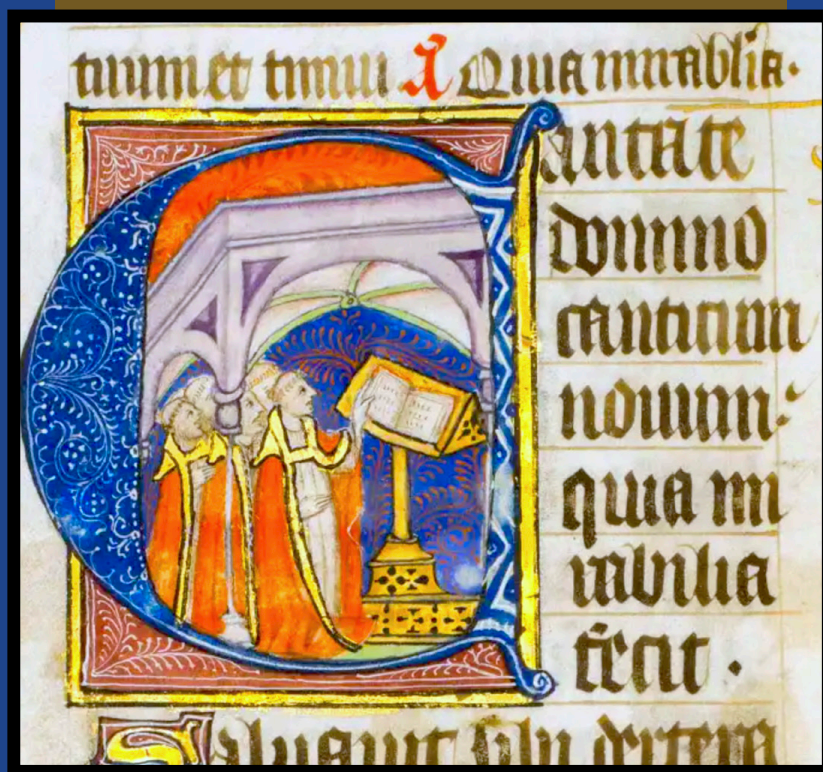 tuum et timui A Quia mirablia.
Cantate
domino
canticum
nouum:
quia mi
rabilia
fecit .
Saluauit sibi dextera